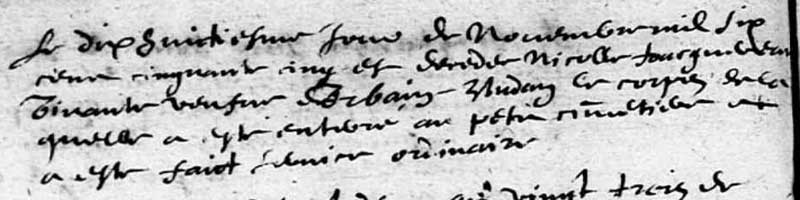 Le dix huictiesme Jour de Novembre mil six
cens cinquante cinq est decedee Nicolle
vivante veufve d'Urbain le corps de la
quelle a esté enterré au petit cimetiere et
a esté faict service ordinaire
vingt trois de